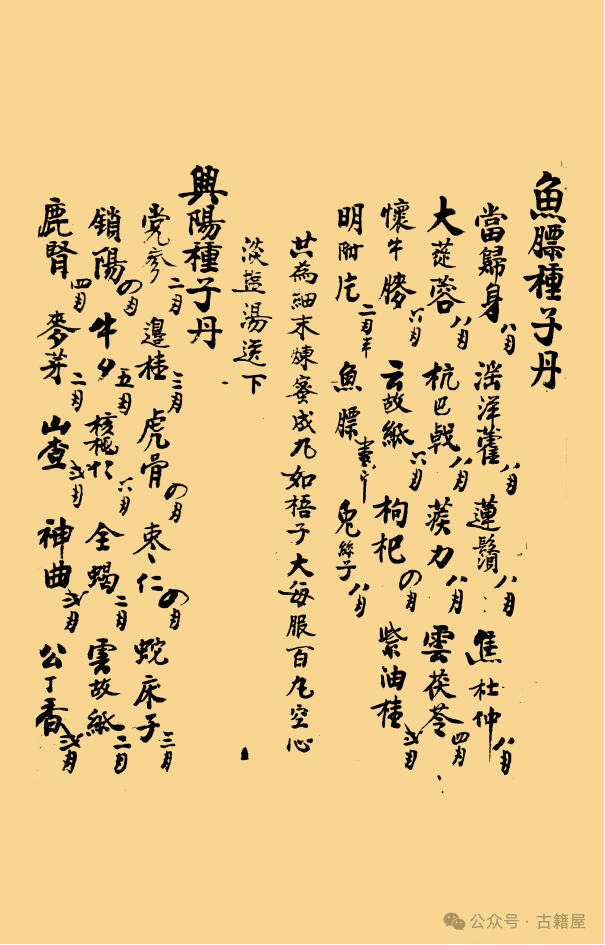 魚膘種子丹
當歸身八月 滛洋藿八月 蓮鬚八月 焦杜仲八月
大蓯蓉八月 杭巴戟八月 蒺力八月 雲茯苓四月
懷牛膝六月 云故紙六月 枸杞の月 紫油桂
明附片二月半 魚膘 兔絲子八月
共為細末煉蜜成丸如梧子大每服百丸空心
淡盐湯送下
興陽種子丹
党參二月 邊桂三月 虎骨の月 枣仁の月 蛇床子三月
鎖陽の月 牛夕五月 核桃仁六月 全蝎二月 雲故紙二月
鹿腎四月 麥芽二月 山查 神曲 公丁香
公众号·古籍屋